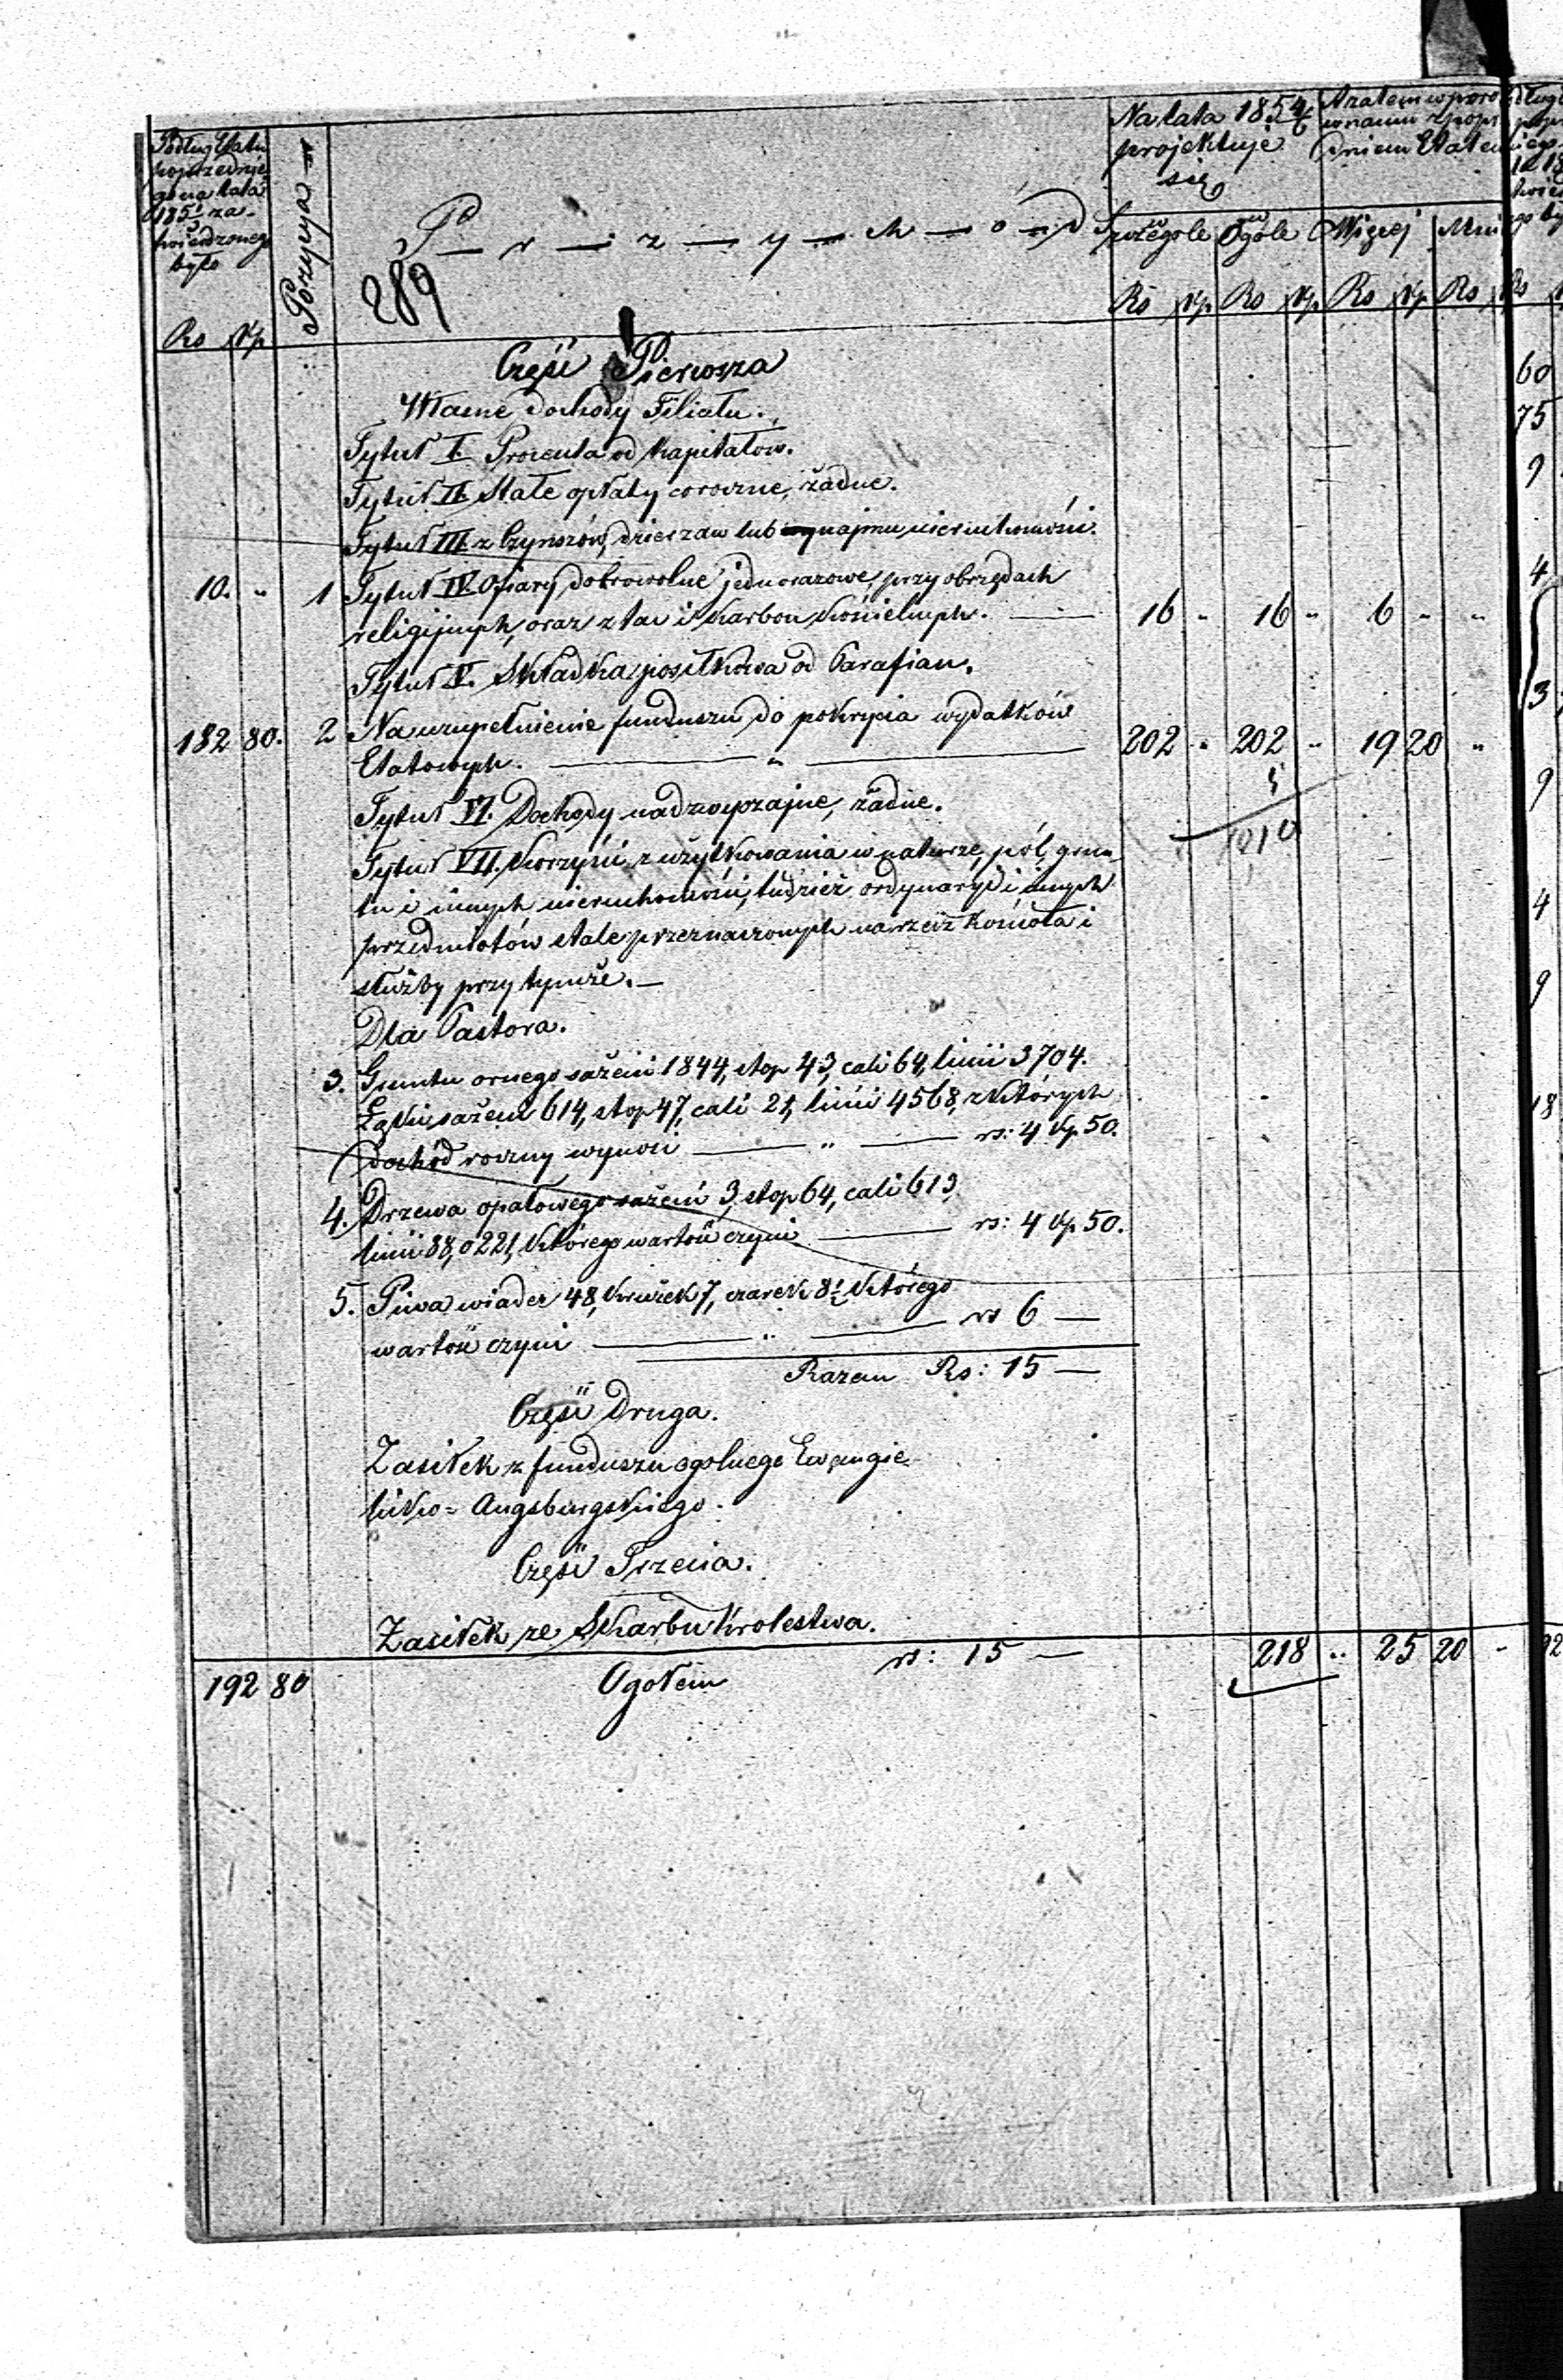 Podług Etatu
poprzednie
go na lata
185 1/3 za-
twierdzonego
było
Rs kp
Pozycya
P-r-z-y-ch-ó-d
289
Na lata 1854/6
projektuje
się
A zatem w poró
wnaniu z pop
dnim Etatem
w
Szczególe
w
Ogóle
Więcej
Mni
Rs kp Rs kp Rs kp Rs
Część Pierwsza
Własne dochody Filiału.
Tytuł I. Procenta od Kapitałów.
Tytuł II. Stałe opłaty coroczne, żadne.
Tytuł III. z Czynszów, dzierzaw lub najmu nieruchomości.
10. " 1 Tytuł IV. Ofiary dobrowolne jednorazowe, przy obrzędach
religijnych, oraz z tac i Skarbon Kościelnych. — 16 " 16 " 6 " "
Tytuł V. Składka posiłkowa od Parafian.
182 80. 2 Na uzupełnienie funduszu do pokrycia wydatków
Etatowych. — " — 202 " 202 " 19 20 "
Tytuł VI. Dochody nadzwyczajne, żadne.
Tytuł VII. Korzyści z użytkowania w naturze, pól, grun
tu i innych nieruchomości, tudzież ordynaryi i innych
przedmiotów stale przeznaczonych na rzecz Kościoła i
służby przy tymże. —
Dla Pastora.
3. Gruntu ornego sażeni 1844, stop 43, cali 64, linii 3704.
Łąki, sażeni 614, stop 47, cali 21, linii 4568, z których
dochód roczny wynosi — " — rs: 4 kp. 50.
4. Drzewa opałowego sażeni 3, stop 64, cali 613,
linii 88,0221, którego wartość czyni — rs: 4 kp. 50.
5. Piwa wiader 48, kwużek 7, czarek 8 1/2 którego
wartość czyni — " — rs 6 —
Razem Rs: 15 —
Część Druga.
Zasiłek z funduszu ogolnego Ewangie
licko-Augsburgskiego.
Część Trzecia.
Zasiłek ze Skarbu Krolestwa.
192 80 Ogołem rs: 15 — 218 " 25 20 "